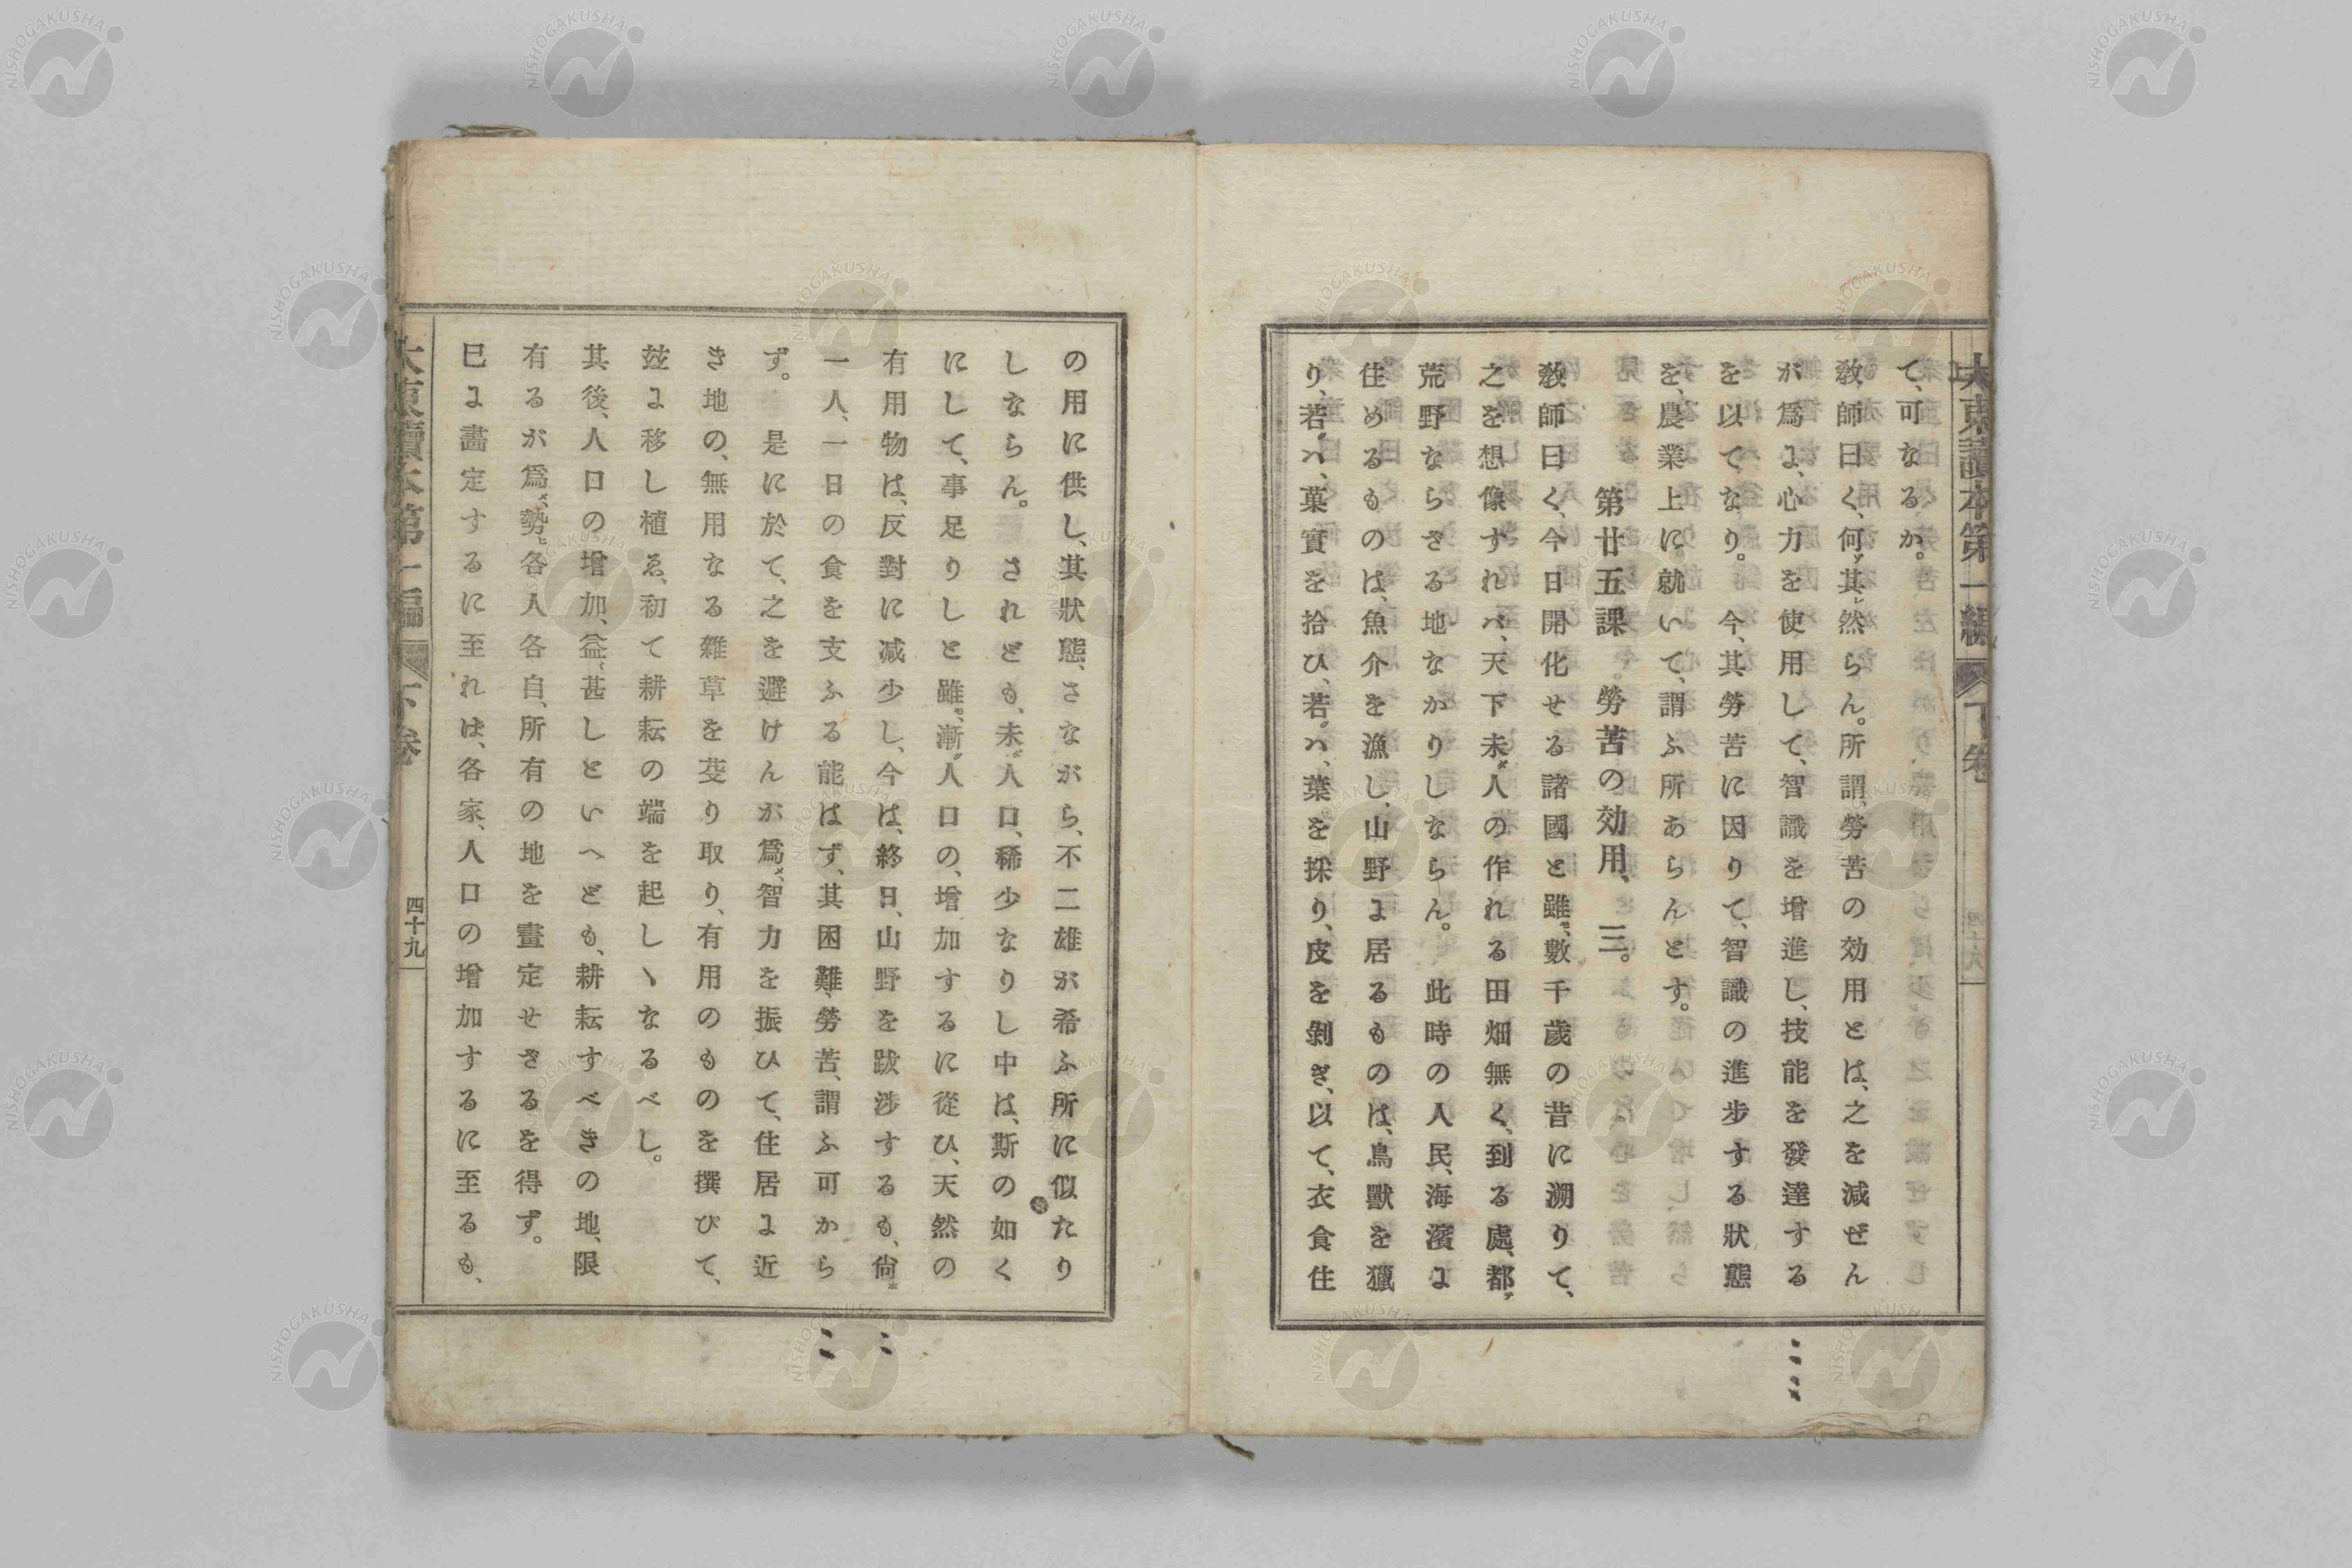 大東讀本第一編 下卷
て、可なるか。
敎師曰く、何ゾ其レ然らん。所謂、勞苦の効用とは、之を減ぜん
が爲よ、心力を使用して、智識を增進し、技能を發達する
を以てなり。今、其勞苦に因りて、智識の進步する狀態
を、農業上に就いて、謂ふ所あらんとす。
第廿五課 勞苦の効用、三。
敎師曰く、今日開化せる諸國と雖モ、數千歲の昔に溯りて、
之を想像すれバ、天下未ダ人の作れる田畑無く、到る處、都テ
荒野ならざる地なかりしならん。此時の人民、海濱よ
住めるものは、魚介を漁し、山野よ居るものは、鳥獸を獵
り、若クハ、菓實を拾ひ、若クハ、葉を採り、皮を剝ぎ、以て、衣食住
の用に供し、其狀態、さながら、不二雄が希ふ所に似たり
しならん。されども、未ダ人口、稀少なりし中は、斯の如く
にして、事足りしと雖モ、漸ク人口の、增加するに從ひ、天然の
有用物は、反對に减少し、今は、終日、山野を跋涉するも、尙ホ
一人、一日の食を支ふる能はず、其困難、勞苦、謂ふ可から
ず。是に於て、之を避けんが爲メ、智力を振ひて、住居よ近
き地の、無用なる雜草を芟り取り、有用のものを撰びて、
玆よ移し植ゑ、初て耕耘の端を起しゝなるべし。
其後、人口の增加、益〻甚しといへども、耕耘すべきの地、限
有るが爲メ、勢ヒ各人各自、所有の地を畫定せざるを得ず。
已よ畵定するに至れは、各家、人口の增加するに至るも、
大東讀本第一編 下卷 四十九